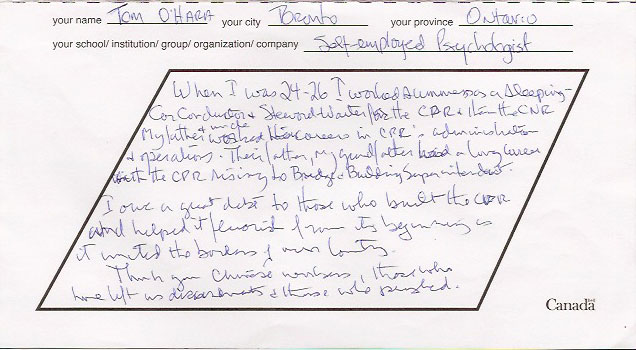 your name Tom O'Hara your city Toronto your province Ontario
your school/ institution/ group/ organization/ company Self-employed Psychologist
When I was 24-26 I worked summers as a Sleeping-
Car Conductor & Steward-Waiter for the CPR & then the CNR
My father & uncle worked their careers in CPR's administration
& operations. Their father, my grandfather had a long career
with the CPR rising to Bridge & Building Superintendent.
I owe a great debt to those who built the CPR
and helped it flourish from its beginning as
it united the borders of our Country.
Thank you Chinese workers, those who
have left us descendants & those who perished.
Canada